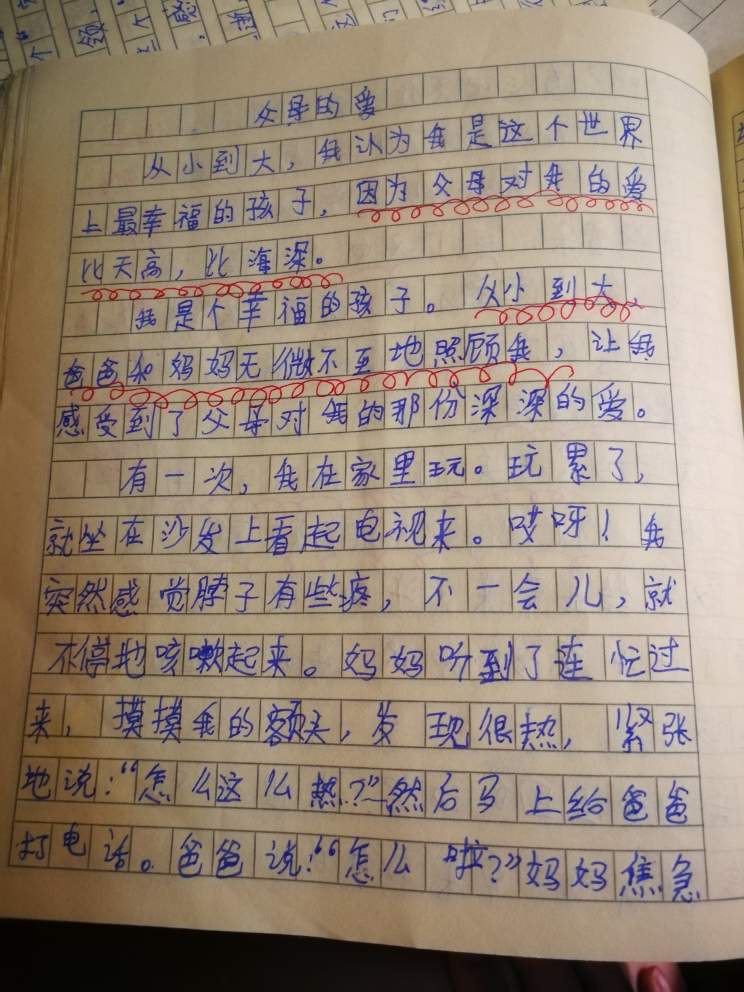 父母的爱
从小到大，我认为我是这个世界
上最幸福的孩子，因为父母对我的爱
比天高，比海深。
我是个幸福的孩子。从小到大，
爸爸和妈妈无微不至地照顾我，让我
感受到了父母对我的那份深深的爱。
有一次，我在家里玩。玩累了，
就坐在沙发上看起电视来。哎呀！我
突然感觉脖子有些疼，不一会儿，就
不停地咳嗽起来。妈妈听到了连忙过
来，摸摸我的额头，发现很热，紧张
地说：“怎么这么热？”然后马上给爸爸
打电话。爸爸说：“怎么啦？”妈妈焦急